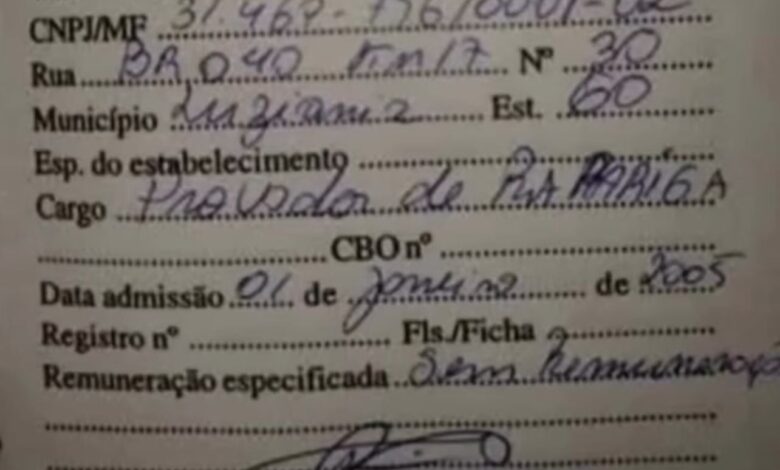 CNPJ/MF 31.467-776/0001-02
Rua BR 040 Km 17 Nº 30
Município Luziania Est. GO
Esp. do estabelecimento
Cargo Provador de RAPARIGA
CBO nº
Data admissão 01 de janeiro de 2005
Registro nº Fls./Ficha
Remuneração especificada Sem Remuneração